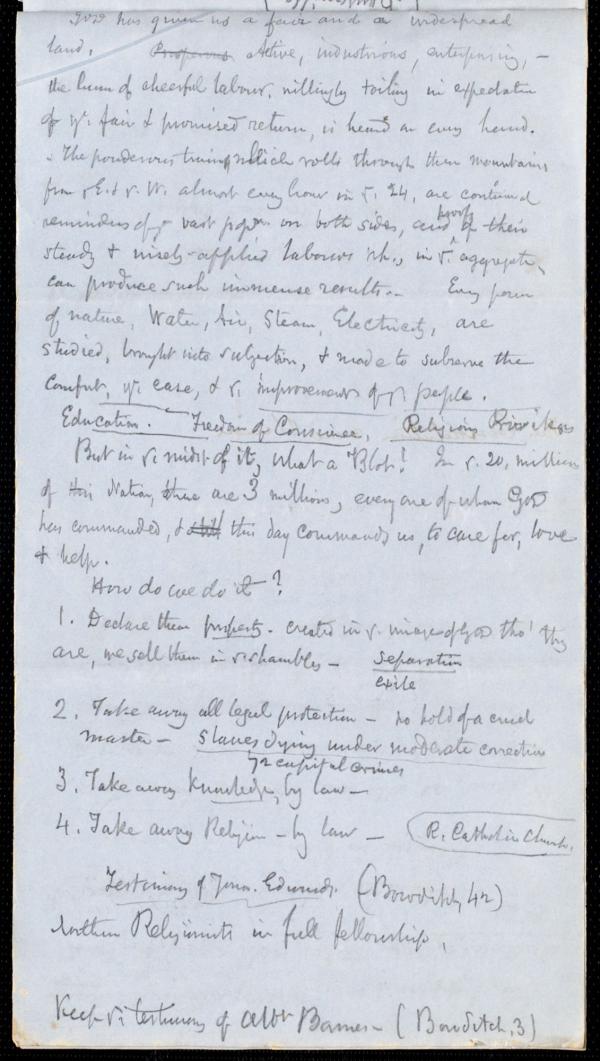 God has given us a fair and a widespread
land. Prosperous Active, industrious, enterprising, —
the hum of cheerful labour, willingly toiling in expectation
of yr. fair & promised return, is heard on every hand.
The ponderous trains, which rolls through these mountains
from E. & W. almost every hour in r. 24, are continued
reminders of vast popn. on both sides, and proofs of their
steady & wisely-applied labours wh., in r. aggregate,
can produce such immense results — Every power
of nature, Water, Air, Steam, Electricity, are
studied, brought into subjection, & made to subserve the
comfort, yr. ease, & r. improvements of yr. people.
Education. Freedom of Conscience, Religious Privileges
But in r. midst of it, what a Blot! In r. 20, millions
of this Nation, there are 3 millions, every one of whom God
has commanded, & still this day commands us, to care for, love
& help.
How do we do it?
1. Declare them property - created in r. image of God tho' they
are, we sell them in r. shambles — separation
exile
2. Take away all legal protection — no hold of a cruel
master — Slaves dying under moderate correction
72 capital crimes
3. Take away Knowledge, by law —
4. Take away Religion — by law — R. Catholic Church.
Testimony of Jona. Edwards. (Bowditch, 42)
Northern Religionists in full fellowship,
Keep r. testimony of Albt Barnes — (Bowditch, 3)